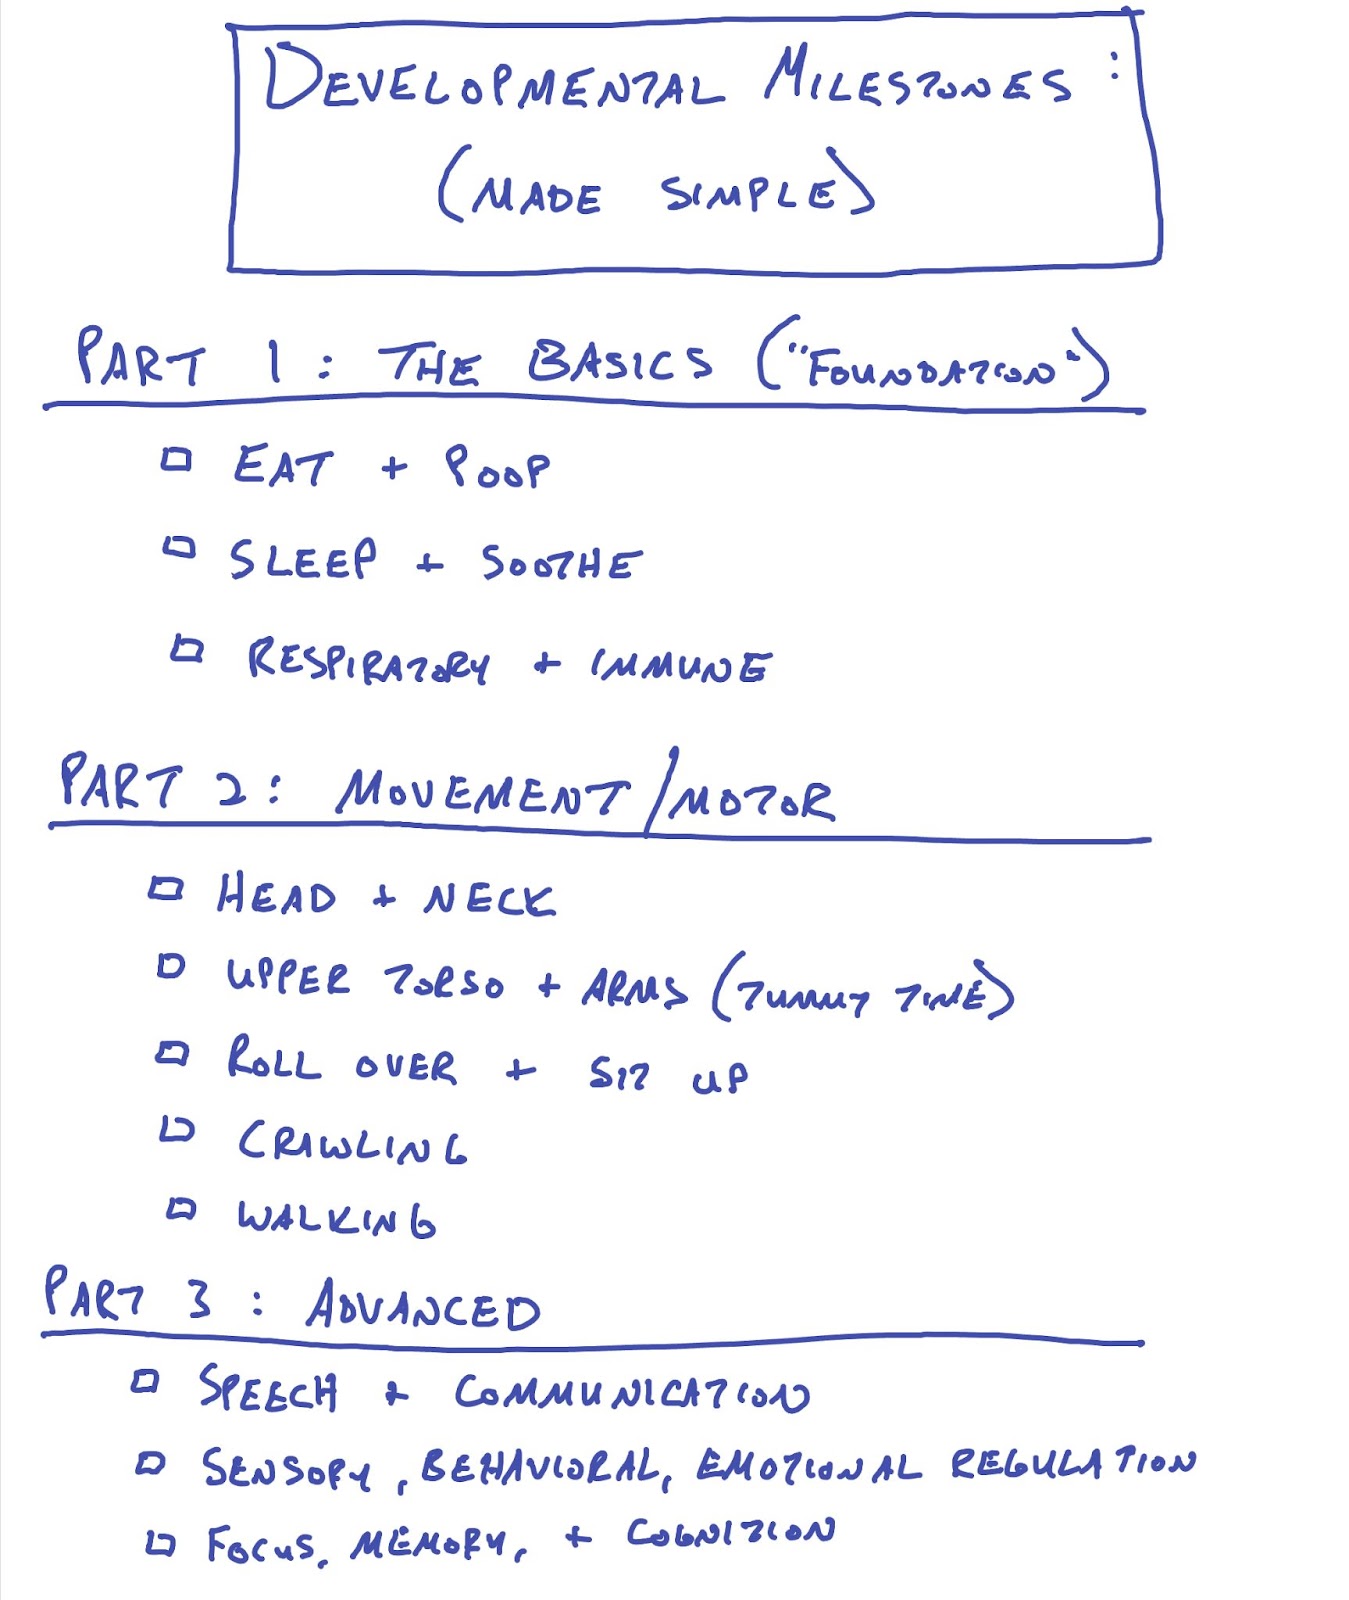 DEVELOPMENTAL MILESTONES:
(MADE SIMPLE)
PART 1: THE BASICS ("FOUNDATION")
EAT + POOP
SLEEP + SOOTHE
RESPIRATORY + IMMUNE
PART 2: MOVEMENT/MOTOR
HEAD + NECK
UPPER TORSO + ARMS (TUMMY TIME)
ROLL OVER + SIT UP
CRAWLING
WALKING
PART 3: ADVANCED
SPEECH + COMMUNICATION
SENSORY, BEHAVIORAL, EMOTIONAL REGULATION
FOCUS, MEMORY, + COGNITION